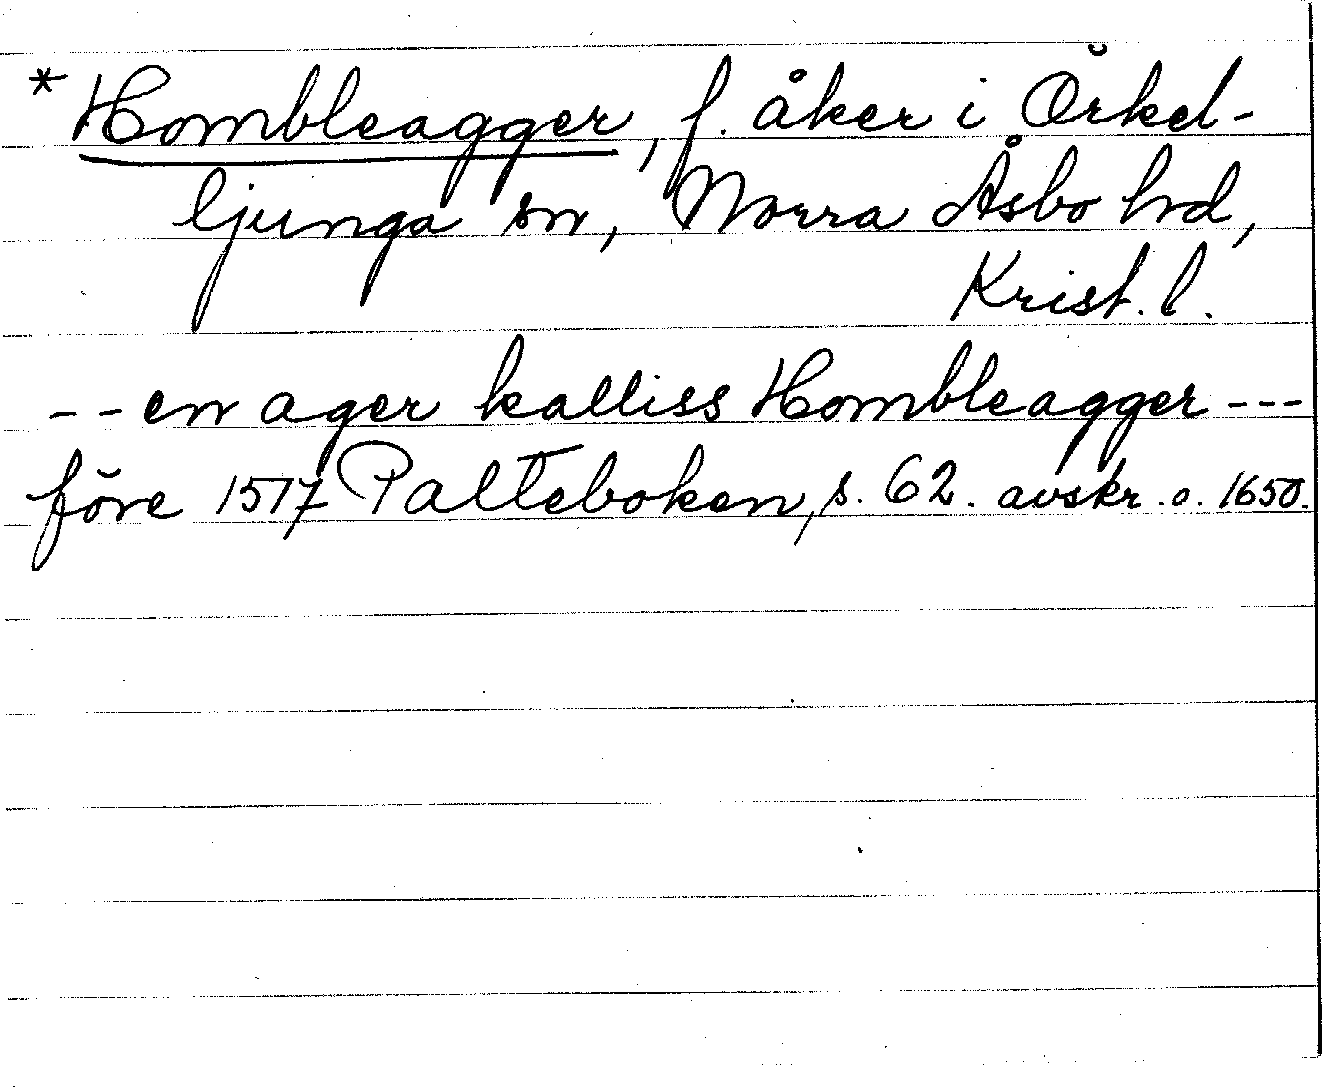 * Hombleagger, f. åker i Örkel-
ljunga sn, Norra Åsbo hrd,
Krist. l.
-- en ager kalliss Hombleagger ---
före 1517 Palteboken, s. 62. avskr. o. 1650.